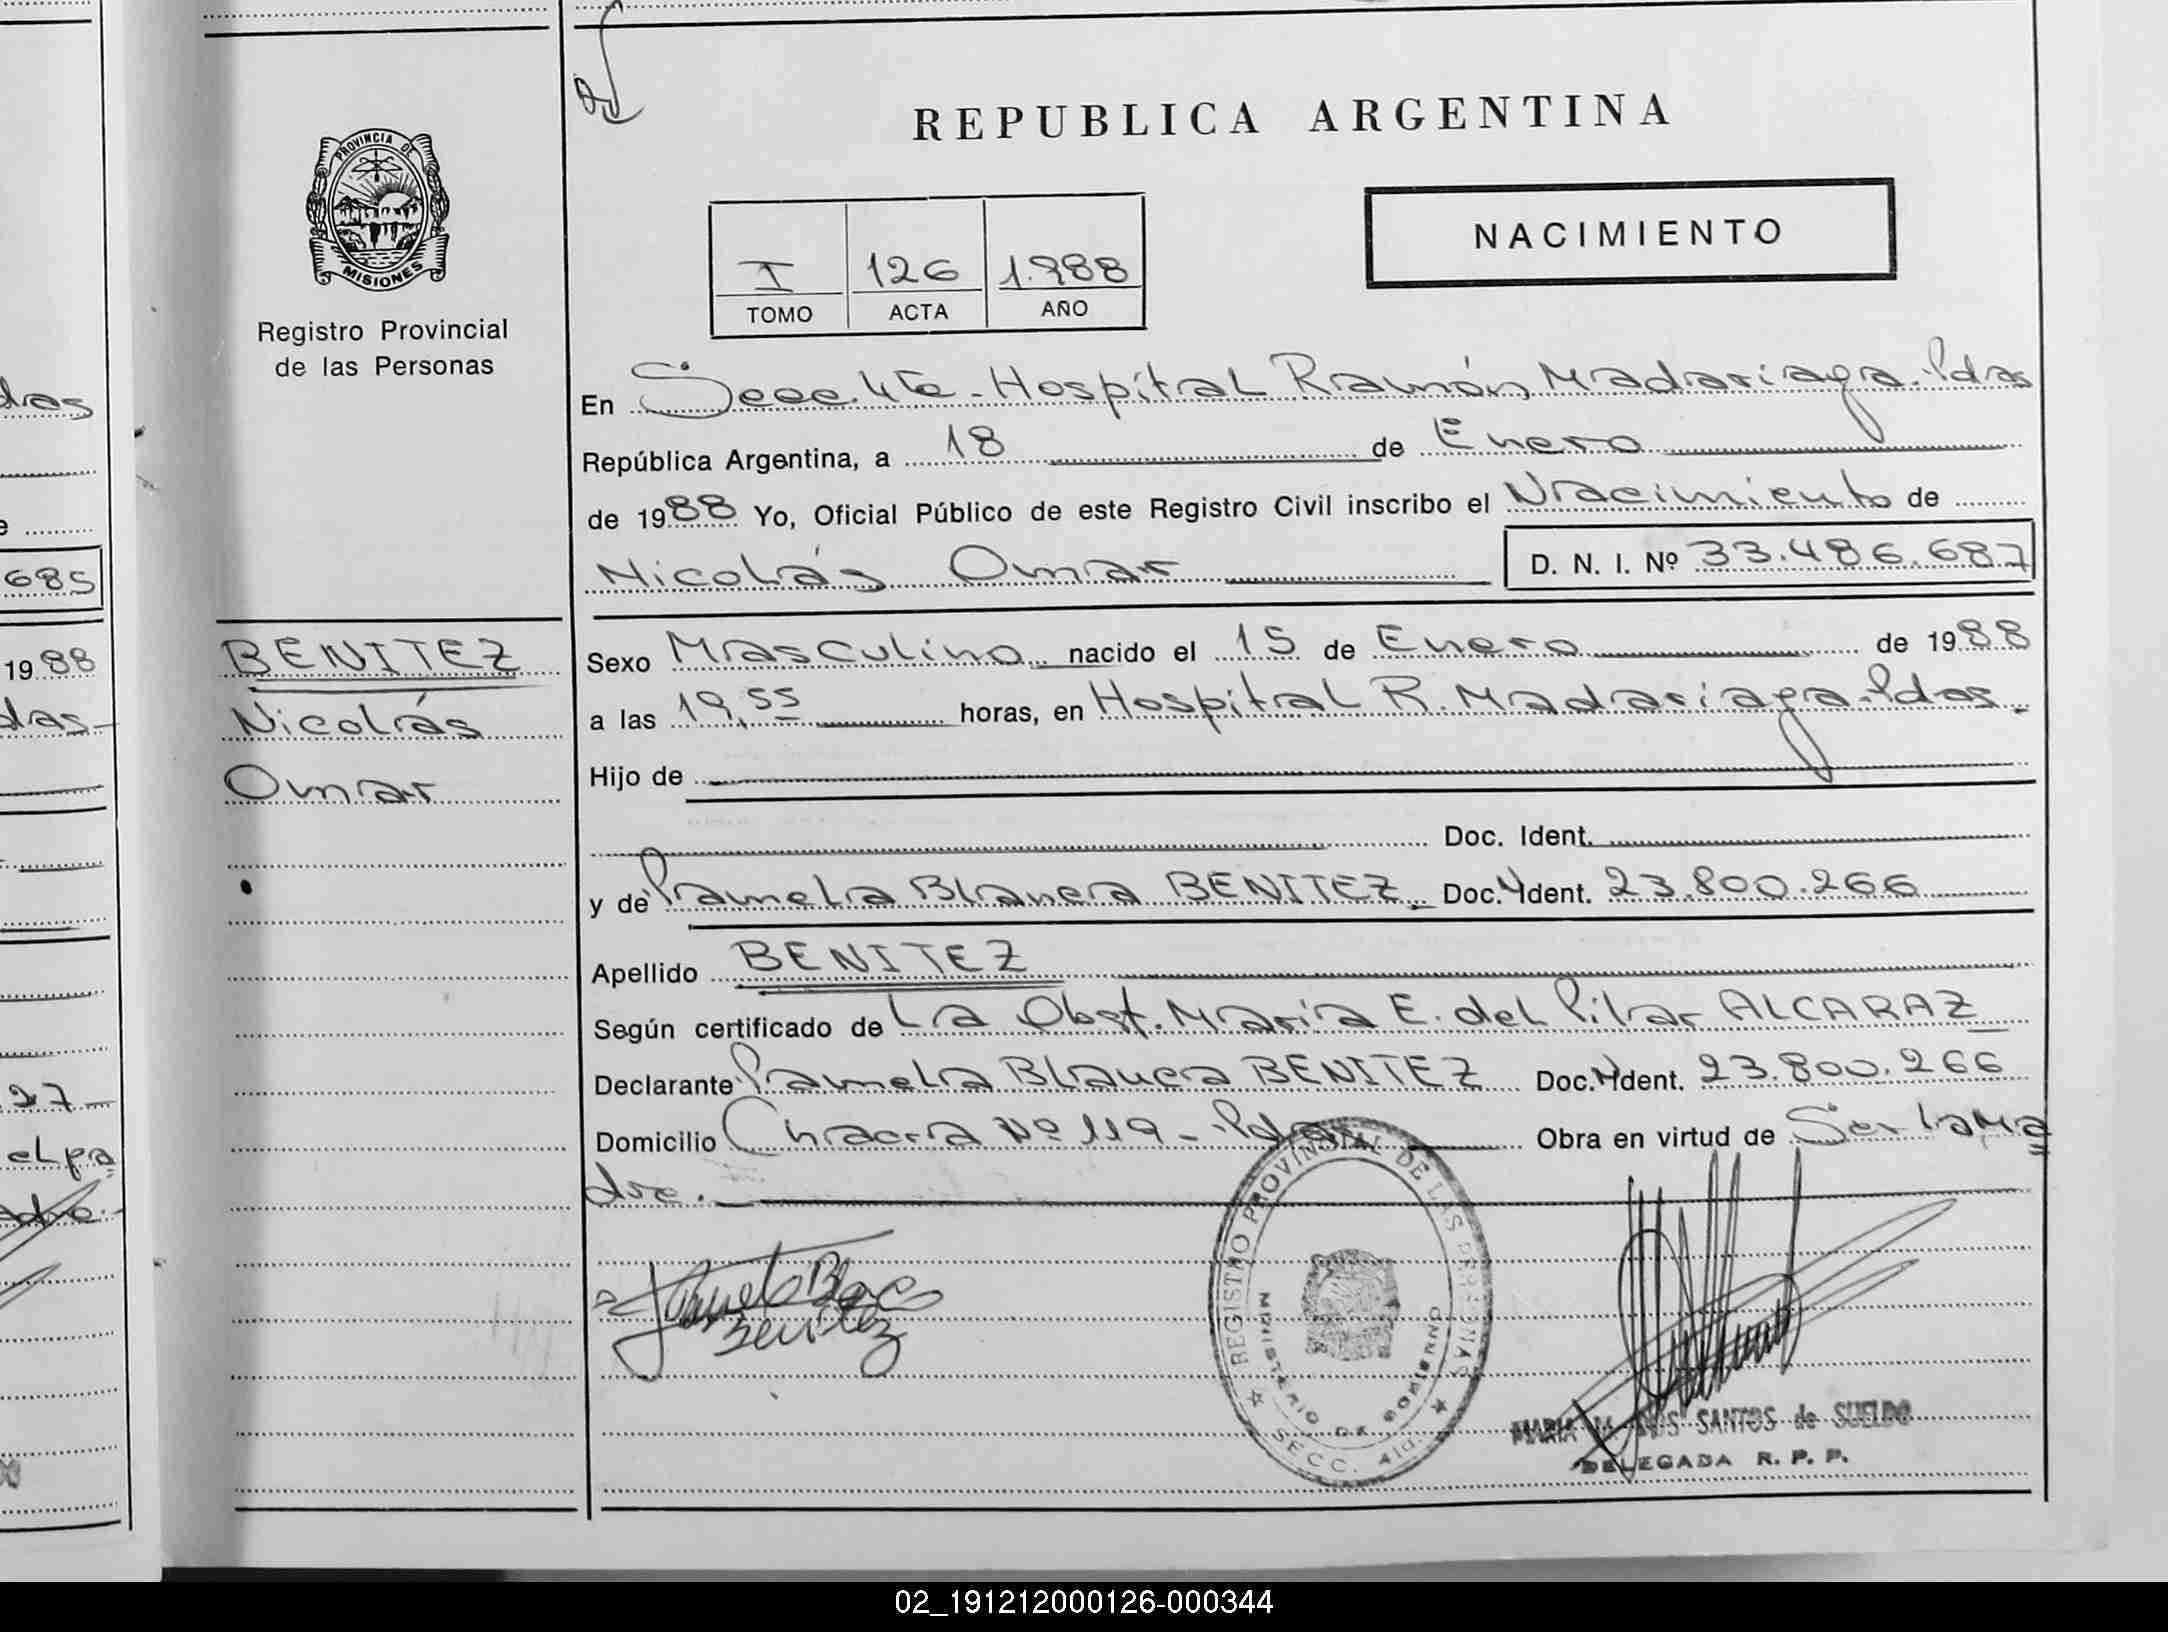 REPUBLICA ARGENTINA
PROVINCIA DE
MISIONES
Registro Provincial
de las Personas
NACIMIENTO
I 126 1.988
TOMO ACTA AÑO
En Secc. 4ta - Hospital Ramón Madariaga. Pdas
República Argentina, a 18 de Enero
de 1988 Yo, Oficial Público de este Registro Civil inscribo el Nacimiento de
Nicolás Omar D. N. I. Nº 33.486.687
BENITEZ
Nicolás
Omar
Sexo Masculino nacido el 15 de Enero de 1988
a las 19,55 horas, en Hospital R. Madariaga. Pdas.
Hijo de
Doc. Ident.
y de Pamela Blanca BENITEZ. Doc. Ident. 23.800.266
Apellido BENITEZ
Según certificado de La Obst. María E. del Pilar ALCARAZ
Declarante Pamela Blanca BENITEZ Doc. Ident. 23.800.266
Domicilio Chacra Nº 119 - Pdas Obra en virtud de Ser la Ma
dre.
Pamela Blanca
Benitez
REGISTRO PROVINCIAL DE LAS PERSONAS
MINISTERIO DE GOBIERNO
SECC. 4ta.
MARIA M. DOS SANTOS de SUELDO
DELEGADA R. P. P.
das
685
1988
das
27
el pa
dre.
02_191212000126-000344